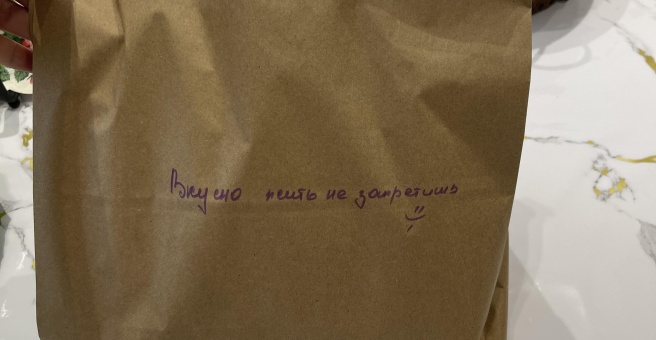 Вкусно жить не запретишь